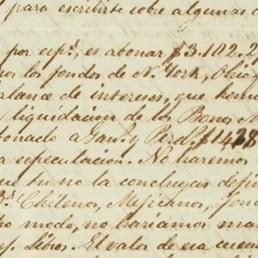 para escribirte sobre algunas c
por esp.l es abonar $3.102.2
por los fondos de N. York, Ohio
alance de intereses, que hem
liquidacion de los Bonos M
bonado a San
a especulacion. No haremos
que tu no la concluyas defi
Chilenos, Mejicanos, fon
ro modo, no hariamos ma
Libros. El valor de esa cuen